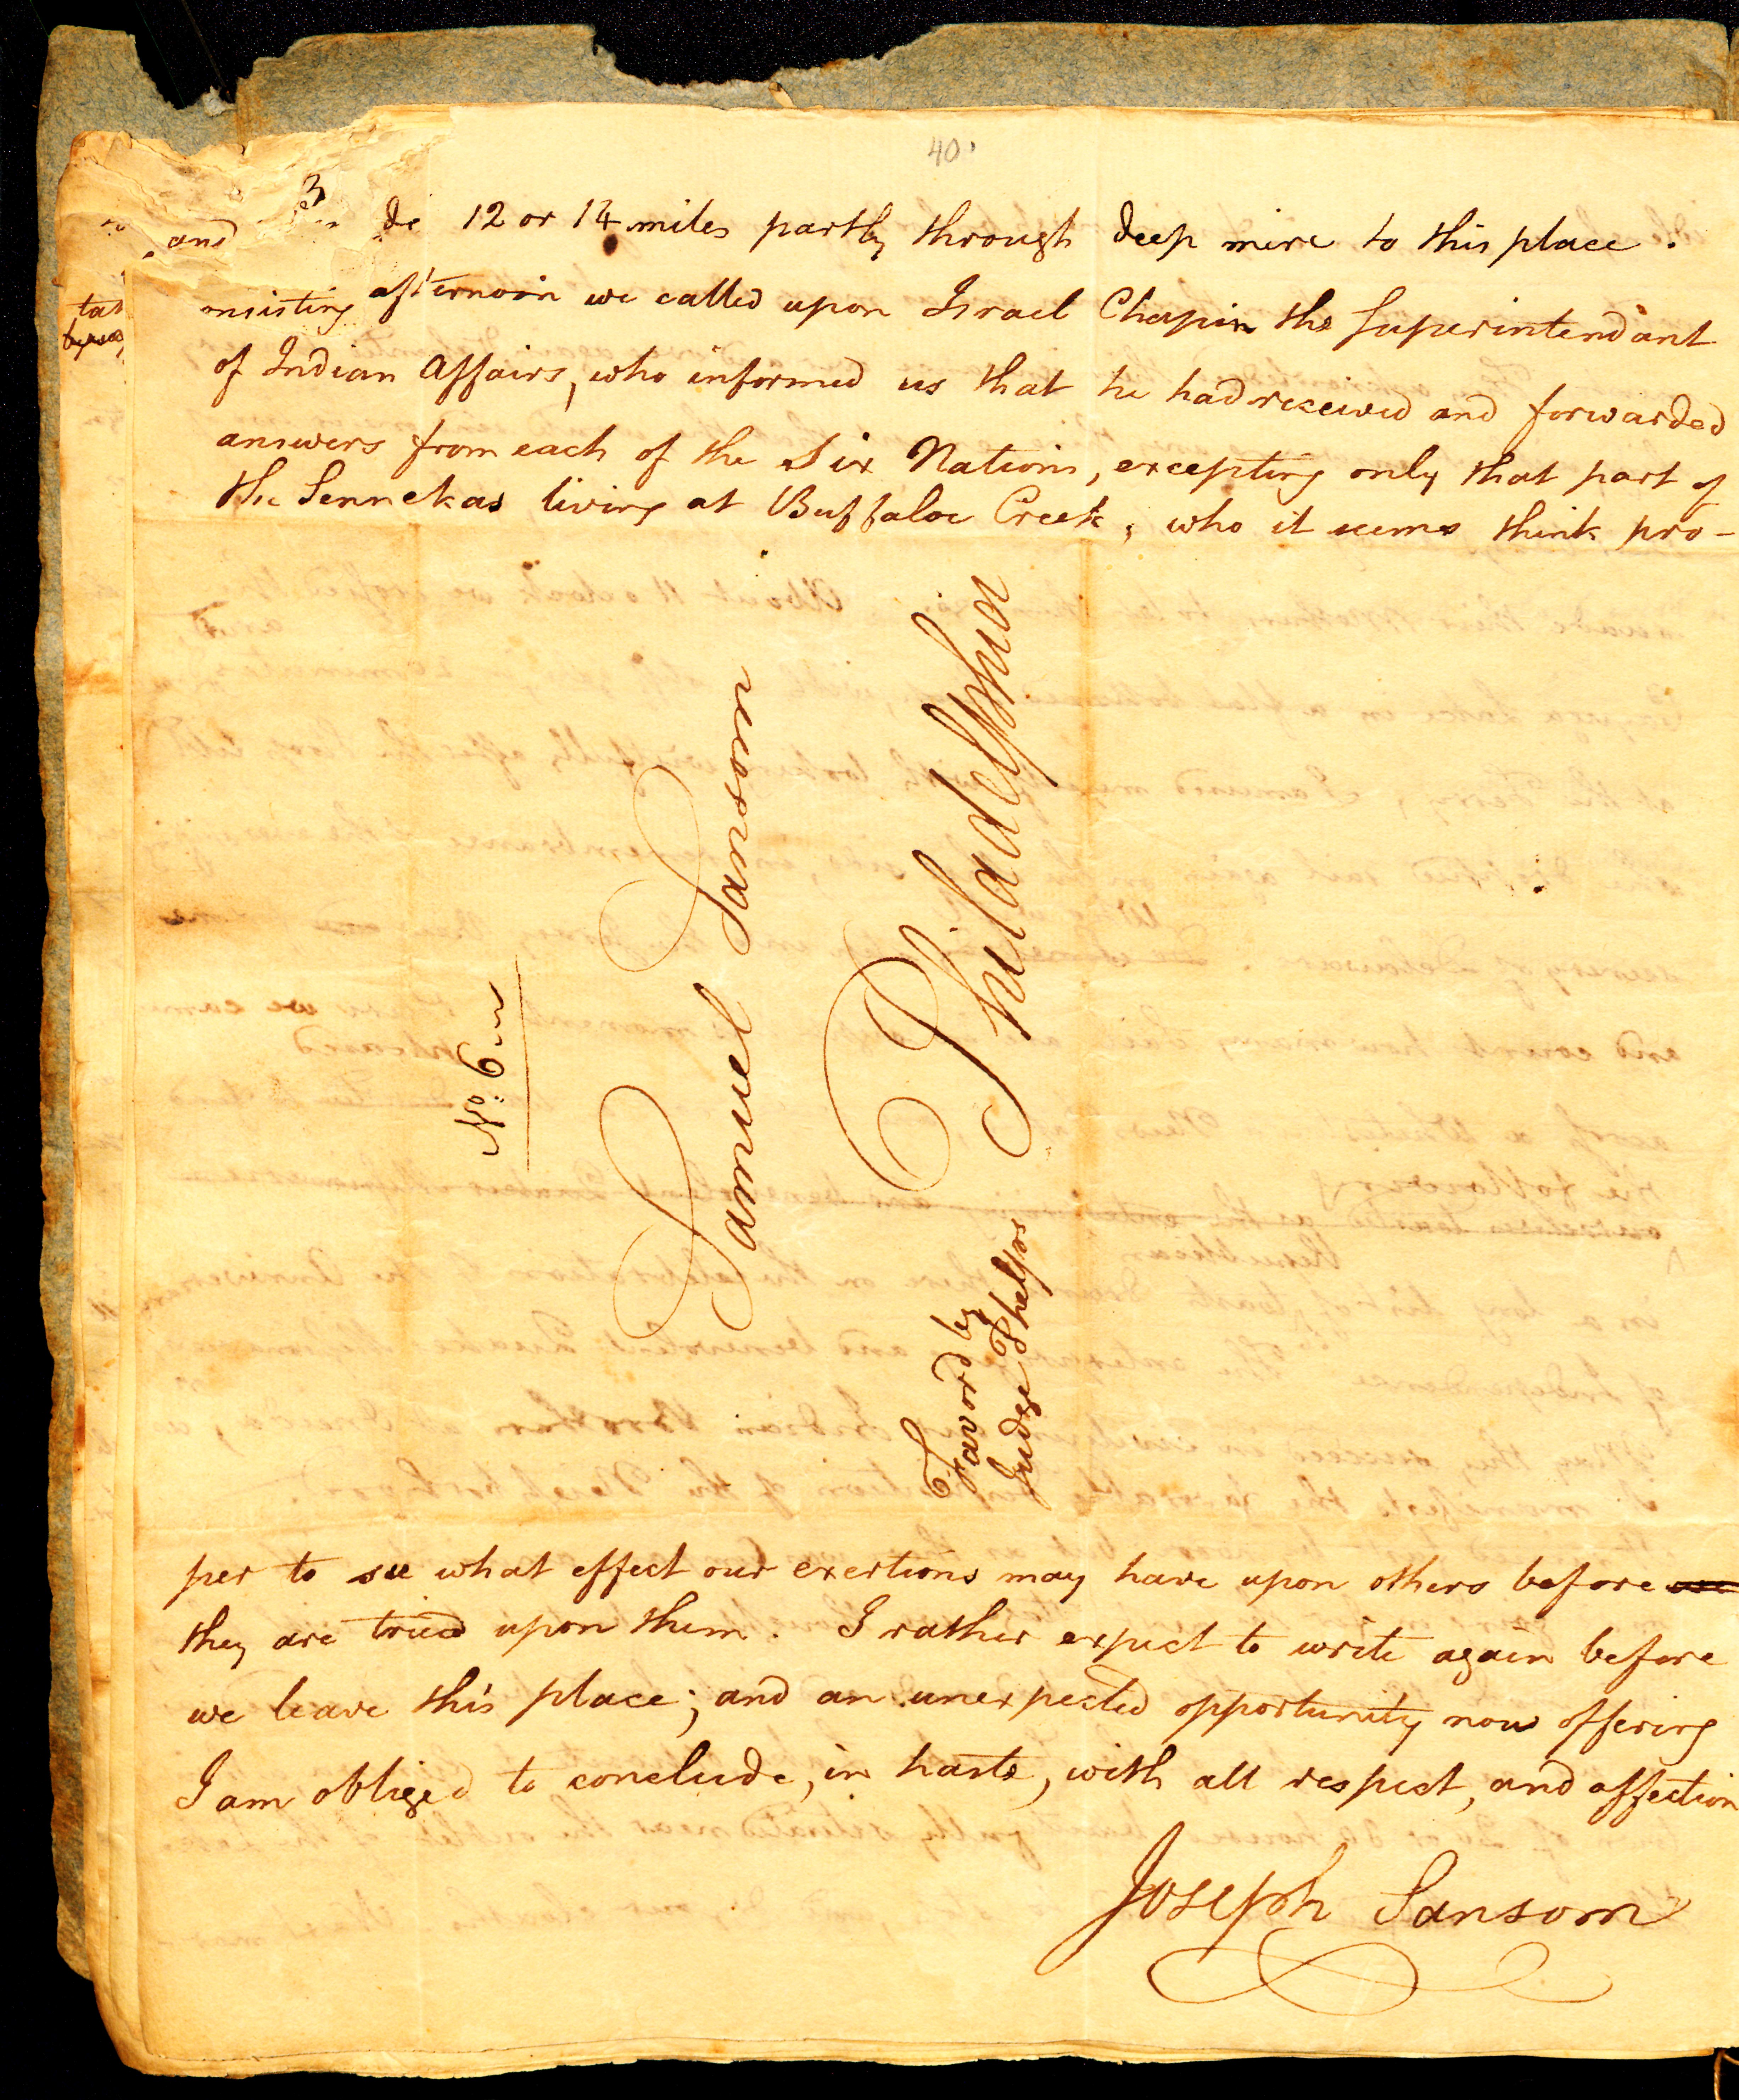 40.
3
and de 12 or 14 miles partly through deep mire to this place.
misting afternoon we called upon Israel Chapin the Superintendant
of Indian Affairs, who informed us that he had received and forwarded
answers from each of the Six Nations, excepting only that part of
the Sennekas living at Buffaloe Creek, who it seems think pro-
No. 6
Samuel Sansom
Philadelphia
Favord by
Judge Phelps
per to see what effect our exertions may have upon others before
they are tried upon them. I rather expect to write again before
we leave this place; and an unexpected opportunity now offering
I am obliged to conclude, in haste, with all respect, and affection
Joseph Sansom